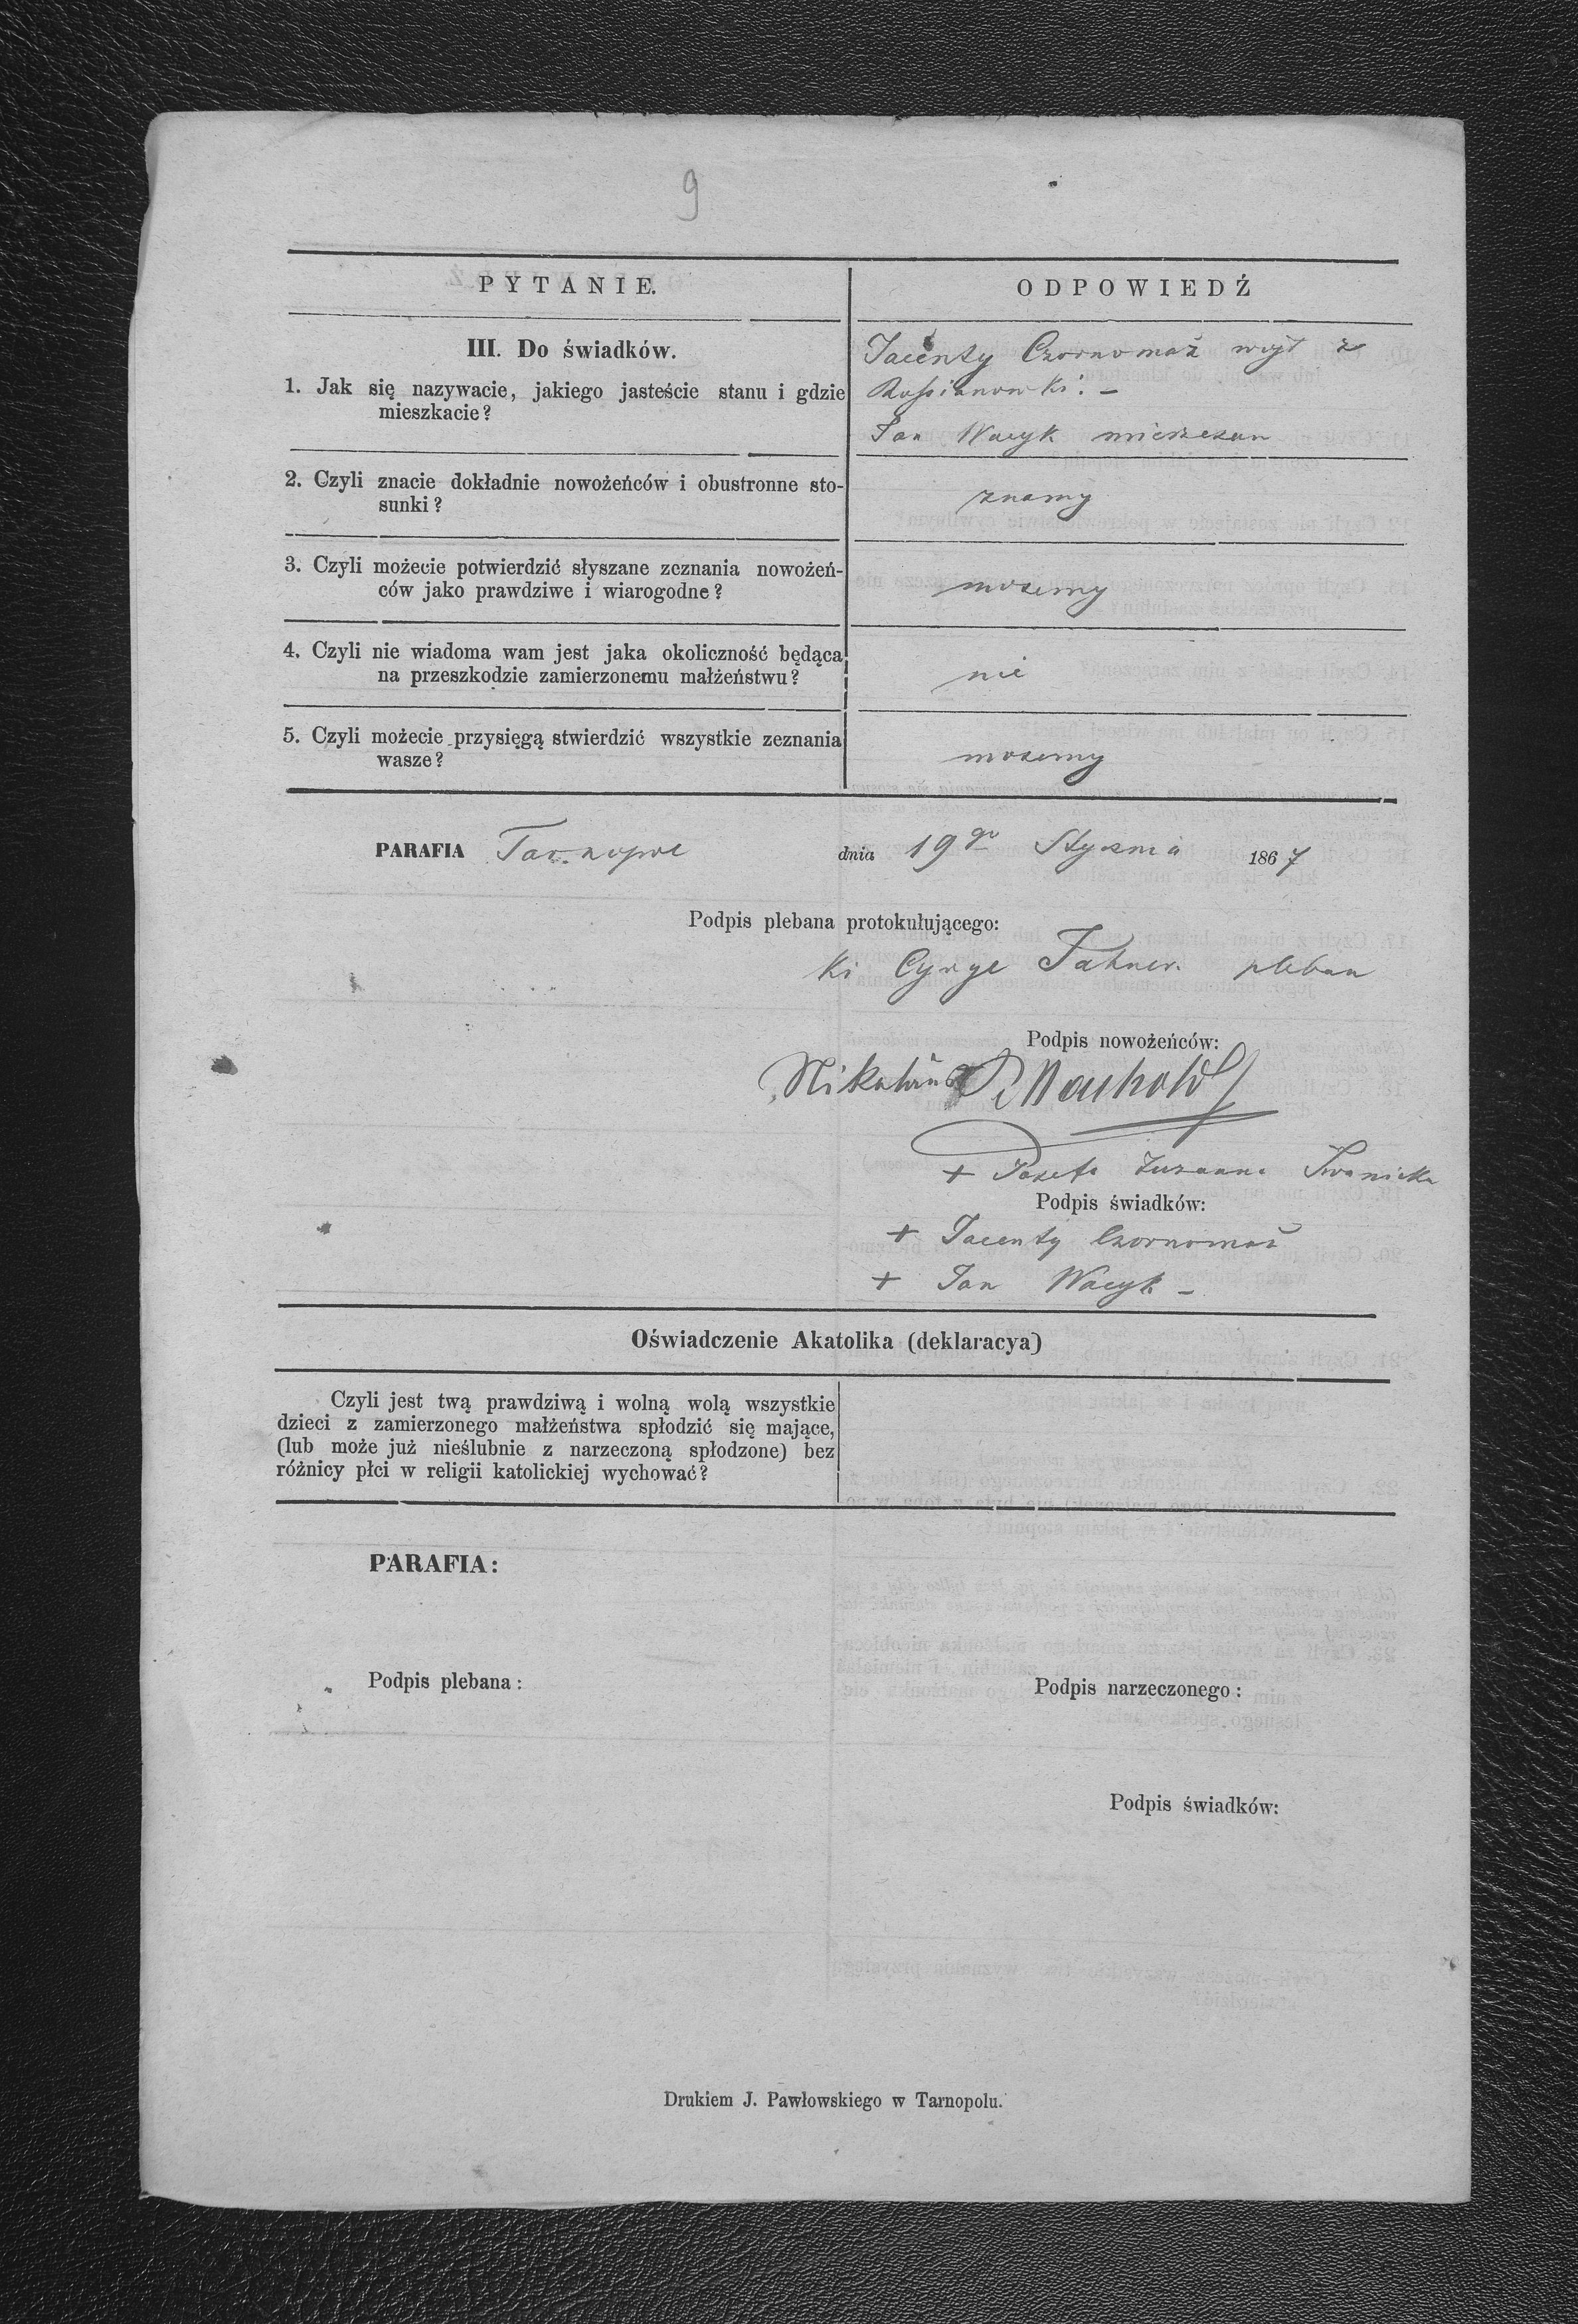 9
PYTANIE.
ODPOWIEDŹ
III. Do świadków.
1. Jak się nazywacie, jakiego jasteście stanu i gdzie
mieszkacie?
Jacenty Czornomaz wojt z
Jan Wacyk mieszczan
2. Czyli znacie dokładnie nowożeńców i obustronne sto-
sunki?
znamy
3. Czyli możecie potwierdzić słyszane zeznania nowożeń-
ców jako prawdziwe i wiarogodne?
mozemy
4. Czyli nie wiadoma wam jest jaka okoliczność będąca
na przeszkodzie zamierzonemu małżeństwu?
nie
5. Czyli możecie przysięgą stwierdzić wszystkie zeznania
wasze?
mozemy
PARAFIA Tarnopol dnia 19go Stycznia 1867
Podpis plebana protokułującego:
pleban
Podpis nowożeńców:
+ Józefa Zuzanna Iwanicka
Podpis świadków:
+ Jacenty Czornomaz
+ Jan Wacyk -
Oświadczenie Akatolika (deklaracya)
Czyli jest twą prawdziwą i wolną wolą wszystkie
dzieci z zamierzonego małżeństwa spłodzić się mające,
(lub może już nieślubnie z narzeczoną spłodzone) bez
różnicy płci w religii katolickiej wychować?
PARAFIA:
Podpis plebana:
Podpis narzeczonego:
Podpis świadków:
Drukiem J. Pawłowskiego w Tarnopolu.